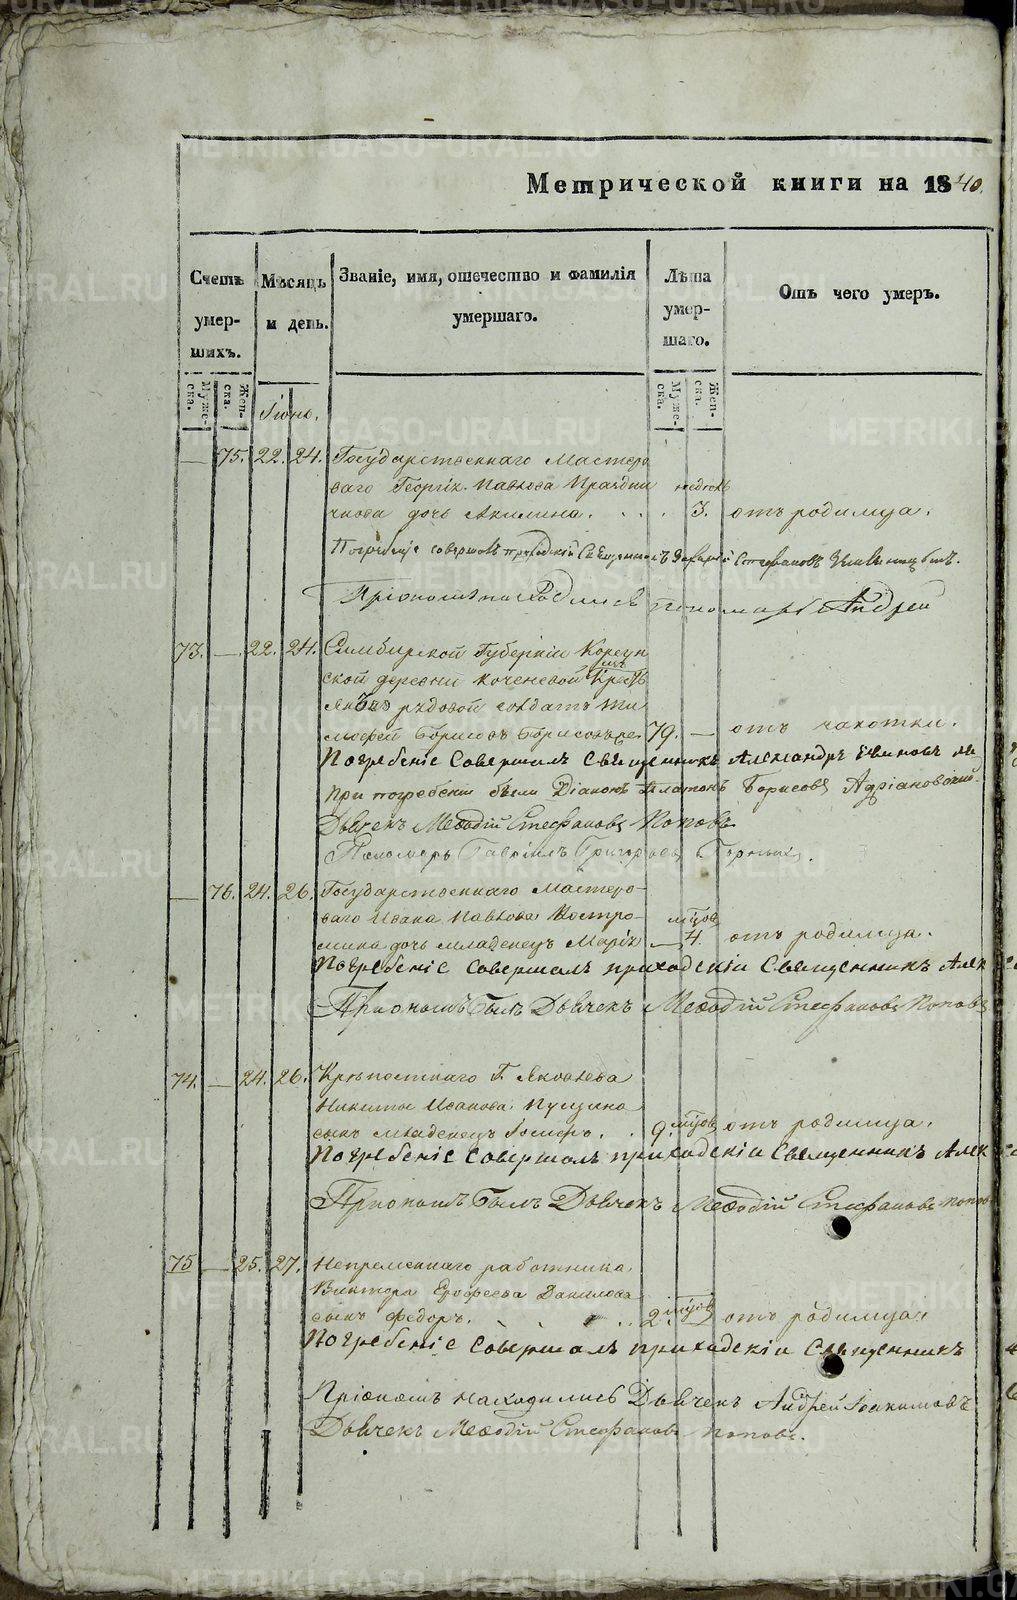 Метрической книги на 1840.
Счетъ умер-шихъ.
Мѣсяцъ и день.
Званіе, имя, отечество и фамилія умершаго.
Лѣта умер-шаго.
Отъ чего умеръ.
Муже-ска.
Жен-ска.
Муже-ска.
Жен-ска.
Іюнь.
— 75. 22. 24. Государственнаго Мастеро
ваго Георгія Павлова
чкова дочь Акилина. . . . недѣль 3. отъ родимца.
Погребеніе совершалъ приходскій Священникъ Стефановъ
При ономъ находились пономарь Андрей
73. — 22. 24. Симбирской Губерніи Корсун
ской деревни Коченевой
рядовой солдатъ Ти
мофей Борисовъ 79. — отъ чахотки.
Погребеніе Совершалъ Священникъ Александръ
При погребеніи были Діаконъ Платонъ Борисовъ Адріановскій.
Дьячекъ Меѳодій Стефановъ Поповъ
Пономарь Гавріилъ Григорьевъ
— 76. 24. 26. Государственнаго Мастеро-
ваго Ивана Павлова Костро-
мина дочь младенецъ Марія — мцов 4. отъ родимца.
Погребеніе совершалъ приходскій Священникъ Алек
При ономъ былъ Дьячекъ Меѳодій Стефановъ Поповъ
74. — 24. 26. Крѣпостнаго Г. Яковлева
Никиты Иванова
сынъ младенецъ . . 9. мцов отъ родимца.
Погребеніе Совершалъ приходскій Священникъ Алек
При ономъ былъ Дьячекъ Меѳодій Стефановъ Попов
75 — 25. 27. Непремѣннаго работника
Виктора Ерофеева Данилова
сынъ Федоръ. . . . 2. мцов отъ родимца.
Погребеніе совершалъ приходскій Священникъ
При ономъ находились Дьячекъ Андрей Іоакимовъ
Дьячекъ Меѳодій Стефановъ Поповъ.
METRIKI.GASO-URAL.RU